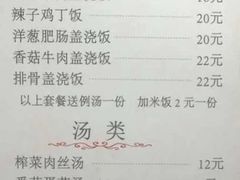 辣子鸡丁饭 20元
洋葱肥肠盖浇饭 20元
香菇牛肉盖浇饭 22元
排骨盖浇饭 22元
以上套餐送例汤一份 加米饭2元一份
汤类
榨菜肉丝汤 12元